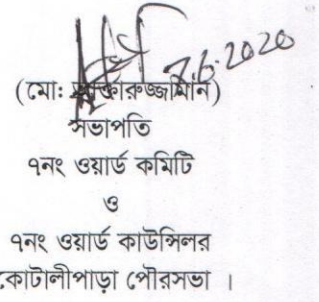 7.6.2020
(মো: মুক্তারুজ্জামান)
সভাপতি
৭নং ওয়ার্ড কমিটি
ও
৭নং ওয়ার্ড কাউন্সিলর
কোটালীপাড়া পৌরসভা ।